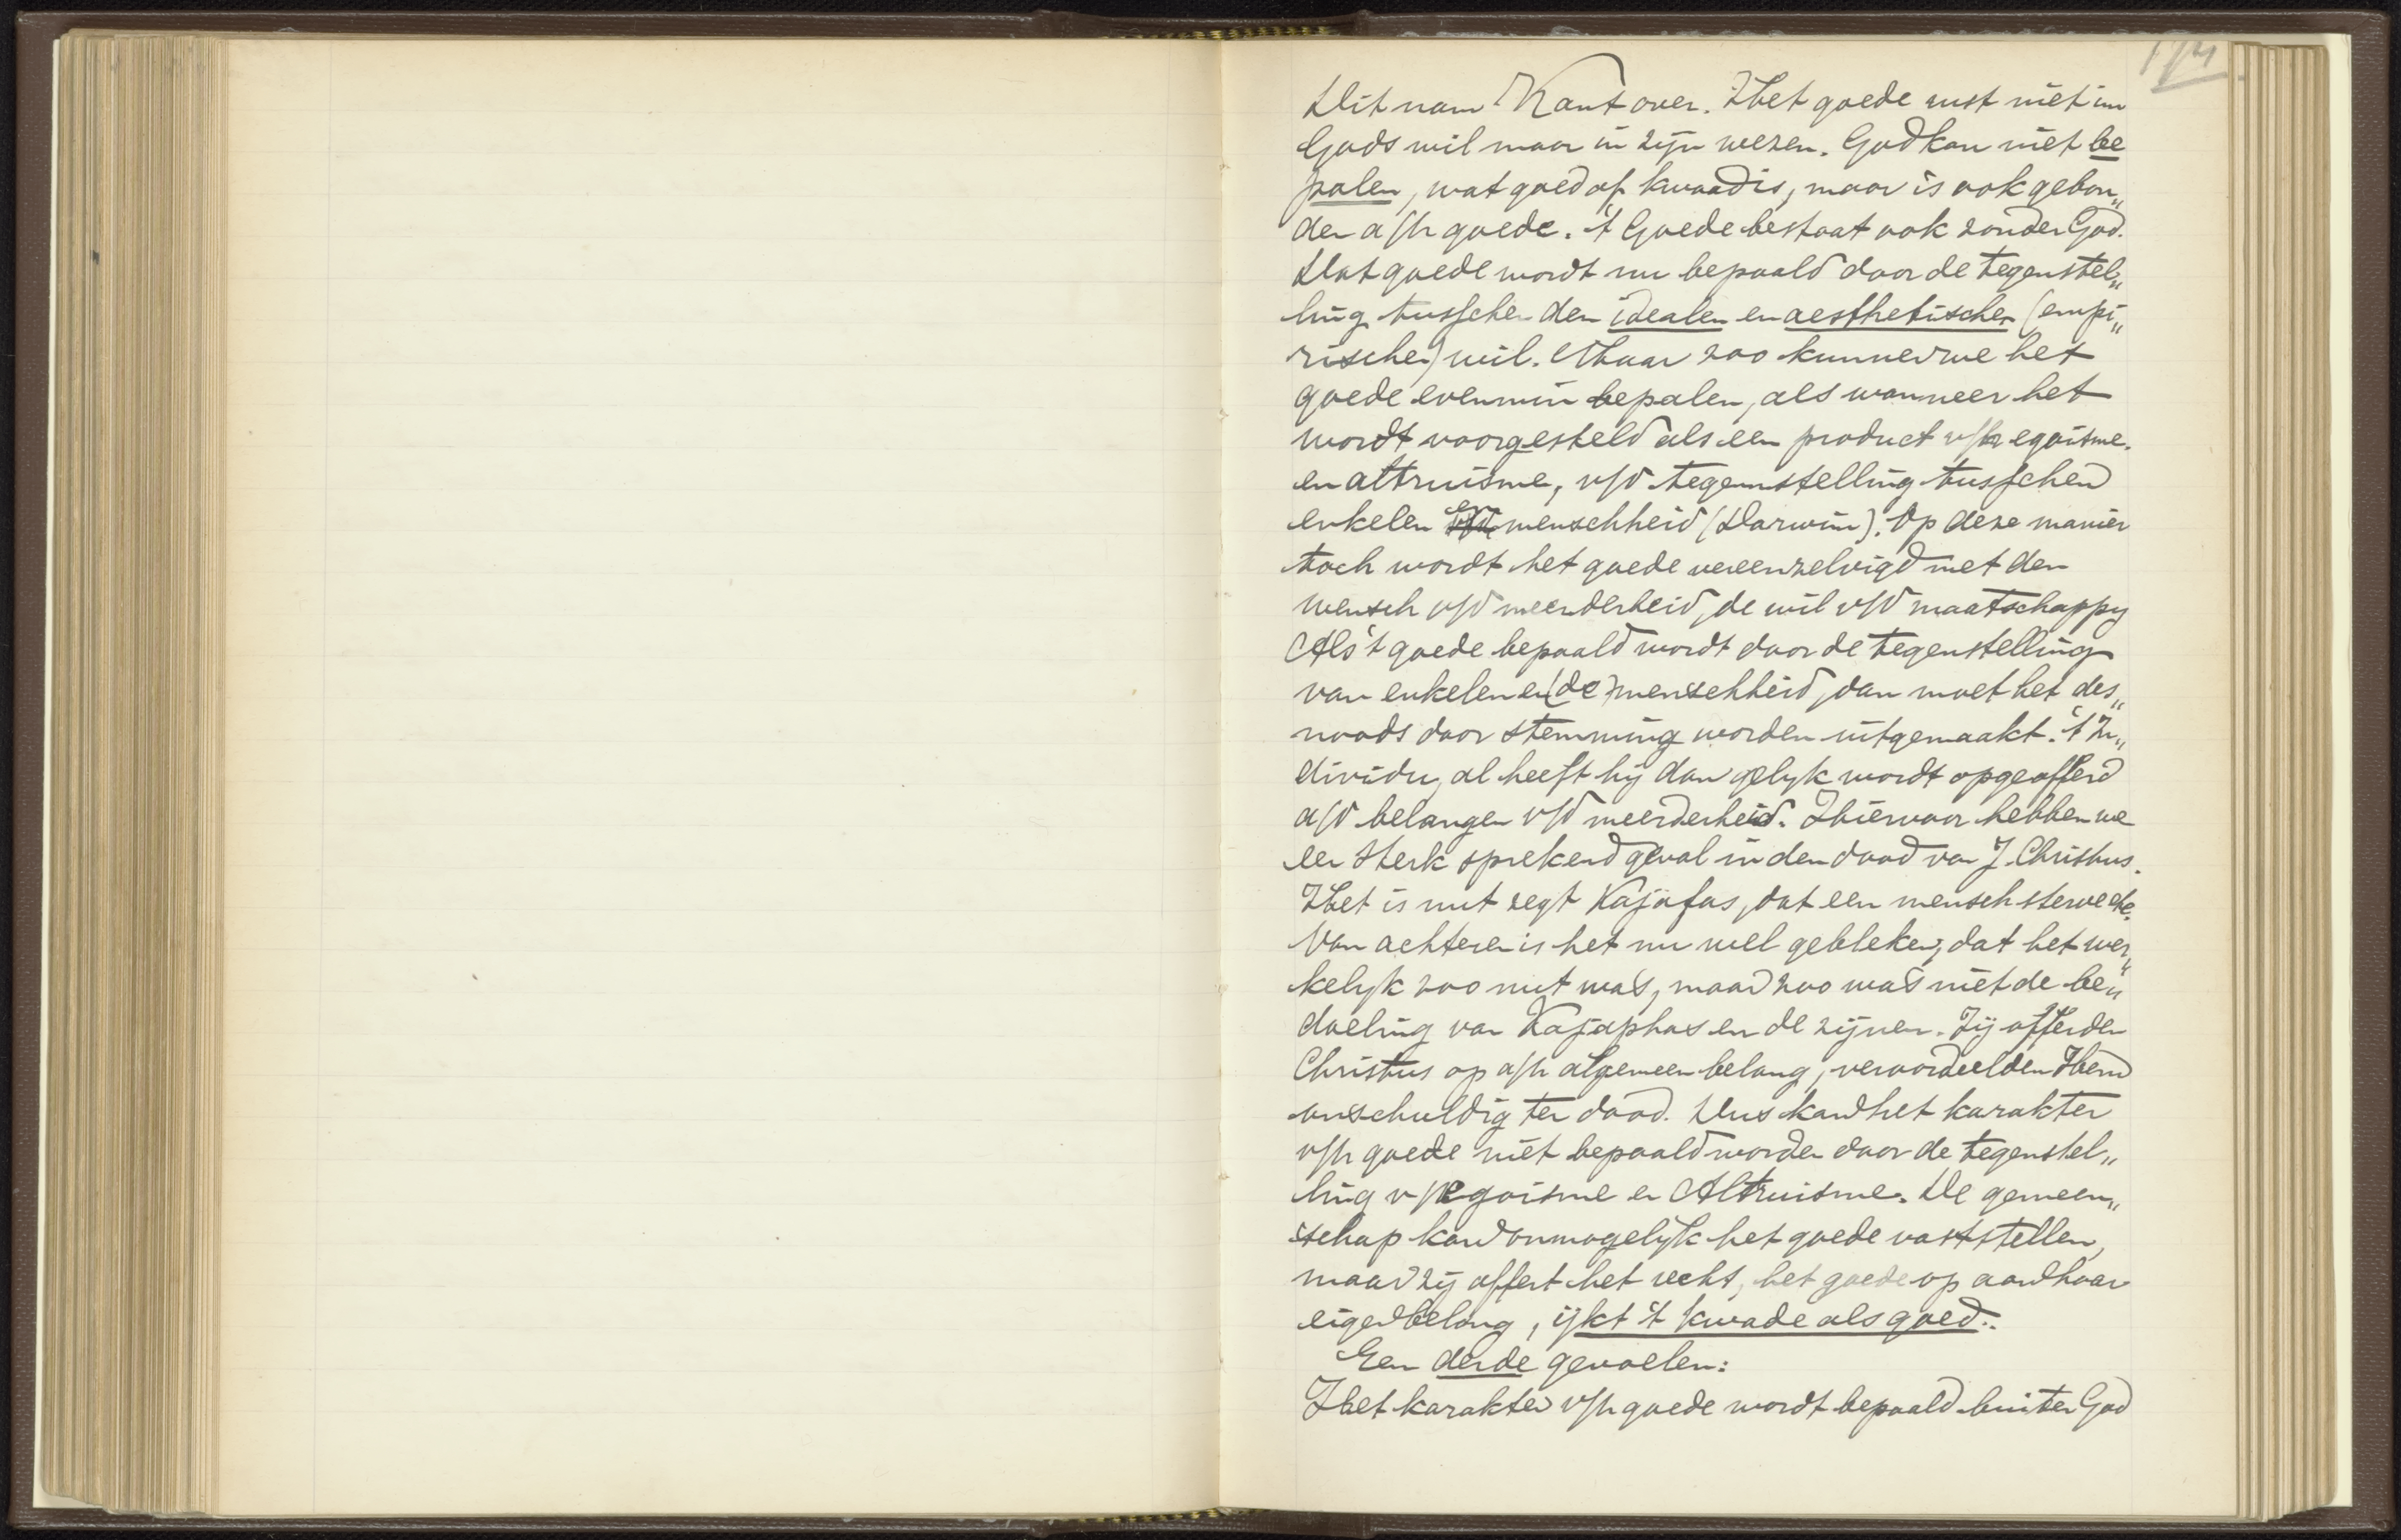 Dit nam Kant over. Het goede rust niet in
Gods wil maar in zijn wezen. God kan niet be
palen, wat goed of kwaad is, maar is ook gebon„
den a/h goede. 't Goede bestaat ook zonder God.
Dat goede wordt nu bepaald door de tegenstel„
ling tusschen den idealen en aesthetischen (empi„
rischen) wil. Maar zoo kunnen we het
goede evenmin bepalen, als wanneer het
wordt voorgesteld als een product v/h egoisme.
en altruisme, v/d tegennstelling tusschen
enkelen en menschheid (Darwin). Op deze manier
toch wordt het goede vereenzelvigd met den
wensch v/d meerderheid, de wil v/d maatschappy
Als 't goede bepaald wordt door de tegenstelling
van enkelen en (de) menschheid, dan moet het des„
noods door stemming worden uitgemaakt. 't In„
dividu, al heeft hij dan gelyk wordt opgeofferd
a/d belangen v/d meerderheid. Hiervoor hebben we
een sterk sprekend geval in den dood van J. Christus.
Het is nut zegt Kajafas, dat een mensch sterve etc.
Van achteren is het nu wel gebleken, dat het wer„
kelyk zoo nut was, maar zoo was niet de be„
doeling van Kajaphas en de zijnen. Zij offerden
Christus op a/h algemeen belang, veroordeelden Hem
onschuldig ter dood. Dus kan het karakter
v/h goede niet bepaald worden door de tegenstel„
ling v/ egoisme en Altruisme. De gemeen„
schap kan onmogelijk het goede vaststellen,
maar zij offert het recht, het goede op aan haar
eigenbelang, ijkt 't kwade als goed.
Een derde gevoelen:
Het karakter v/h goede wordt bepaald buiten God